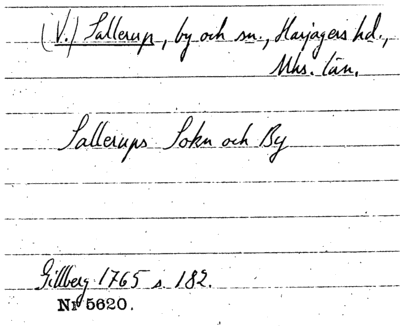 (V.) Sallerup, by och sn., Harjagers hd.,
Mhs. län.
Sallerups Sokn och By
Gillberg 1765 s. 182.
Nr 5620.